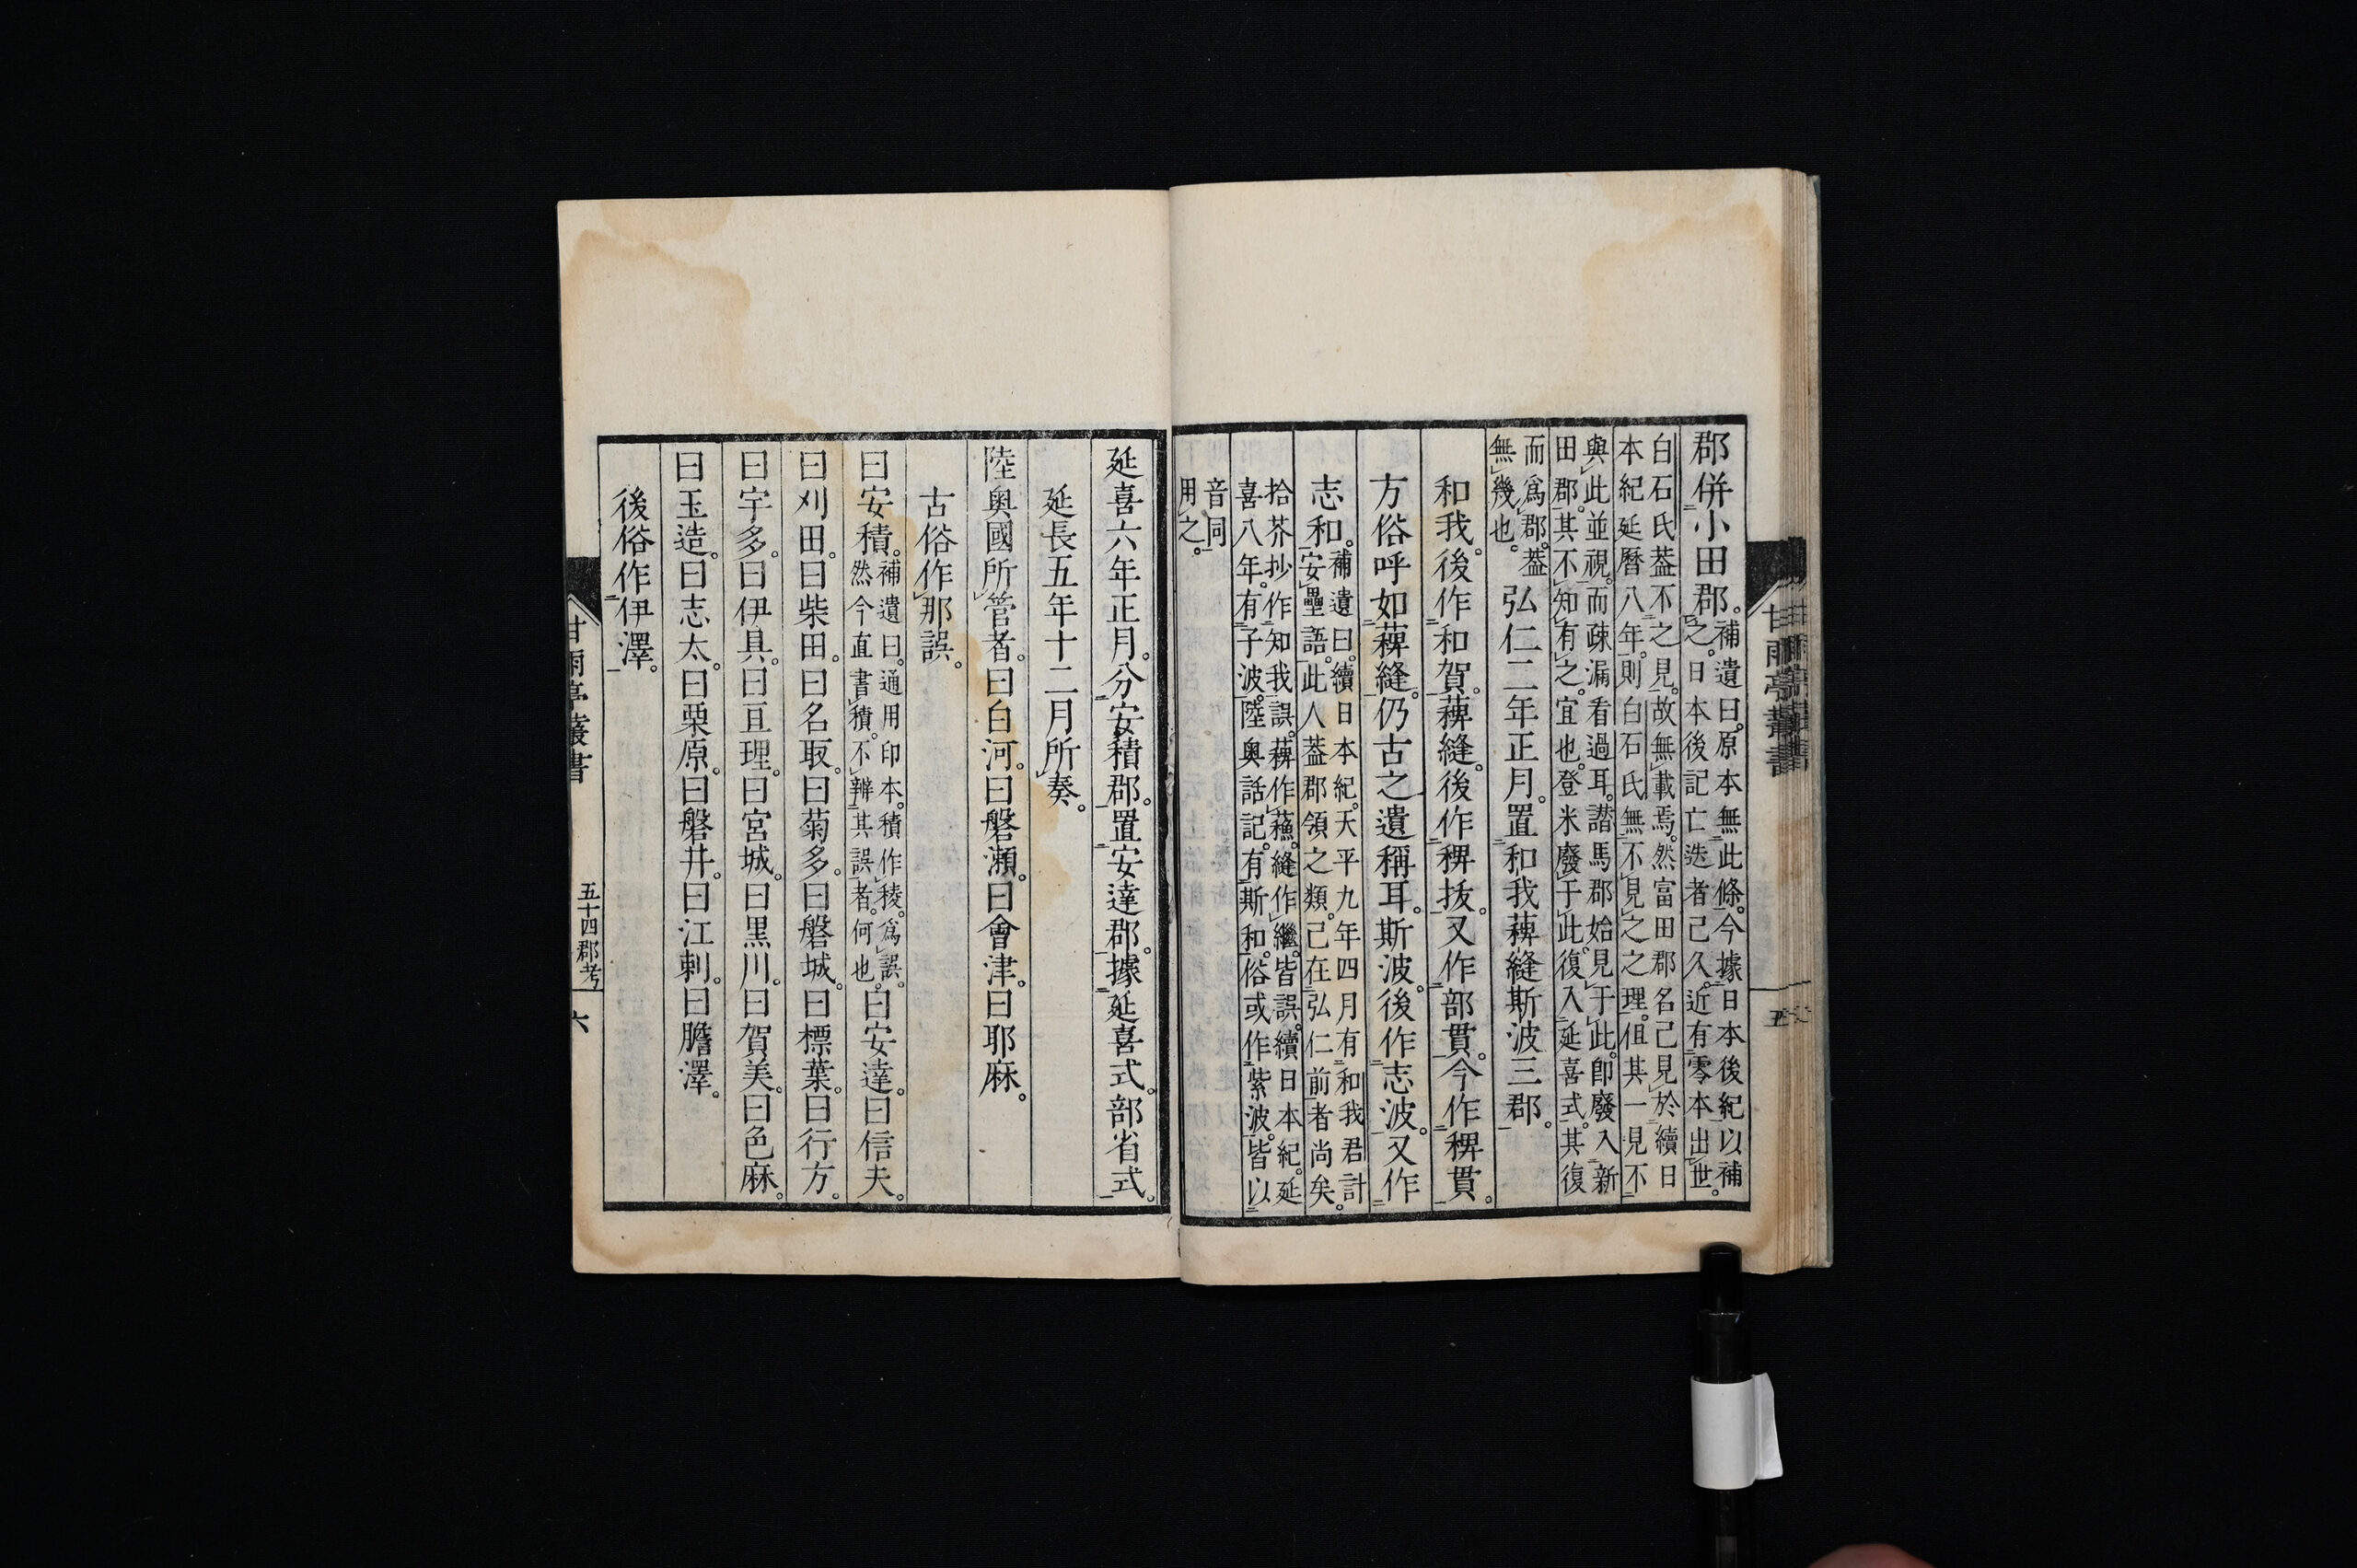 郡併小田郡。補遺曰。原本無此條。今據日本後紀以補
之。日本後記亡迭者己久。近有零本出世。
白石氏葢不之見。故無載焉。然富田郡名己見於續日
本紀延曆八年。則白石氏無不見之之理。伹其一見不
與此並視。而疎漏看過耳。讃馬郡始見于此。卽廢入新
田郡。其不知有之。宜也。登米廢于此。復入延喜式。其復
而爲郡。葢
無幾也。
弘仁二年正月。置和我薭縫斯波三郡。
和我。後作和賀。薭縫。後作稗拔。又作部貫。今作稗貫。
方俗呼如薭縫。仍古之遺稱耳。斯波。後作志波。又作
志和。補遺曰。續日本紀。天平九年四月有和我君計
安壘語。此人葢郡領之類。己在弘仁前者尚矣。
拾芥抄作知我誤。薭作蘓。縫作繼。皆誤。續日本紀。延
喜八年。有子波。陸奥話記。有斯和。俗或作紫波。皆以
音同
用之。
甘雨亭叢書
五
延喜六年正月。分安積郡。置安達郡。據延喜式。部省式。
延長五年十二月所奏。
陸奥國所管者。曰白河。曰磐瀬。曰會津。曰耶麻。
古俗作那誤。
曰安積。補遺曰。通用印本。積作稜。爲誤。
然今直書積。不辨其誤者。何也。
曰安達。曰信夫。
曰刈田。曰柴田。曰名取。曰菊多。曰磐城。曰標葉。曰行方。
曰宇多。曰伊具。曰亘理。曰宮城。曰黒川。曰賀美。曰色麻。
曰玉造。曰志太。曰栗原。曰磐井。曰江刺。曰膽澤。
後俗作伊澤。
甘雨亭叢書
五十四郡考
六